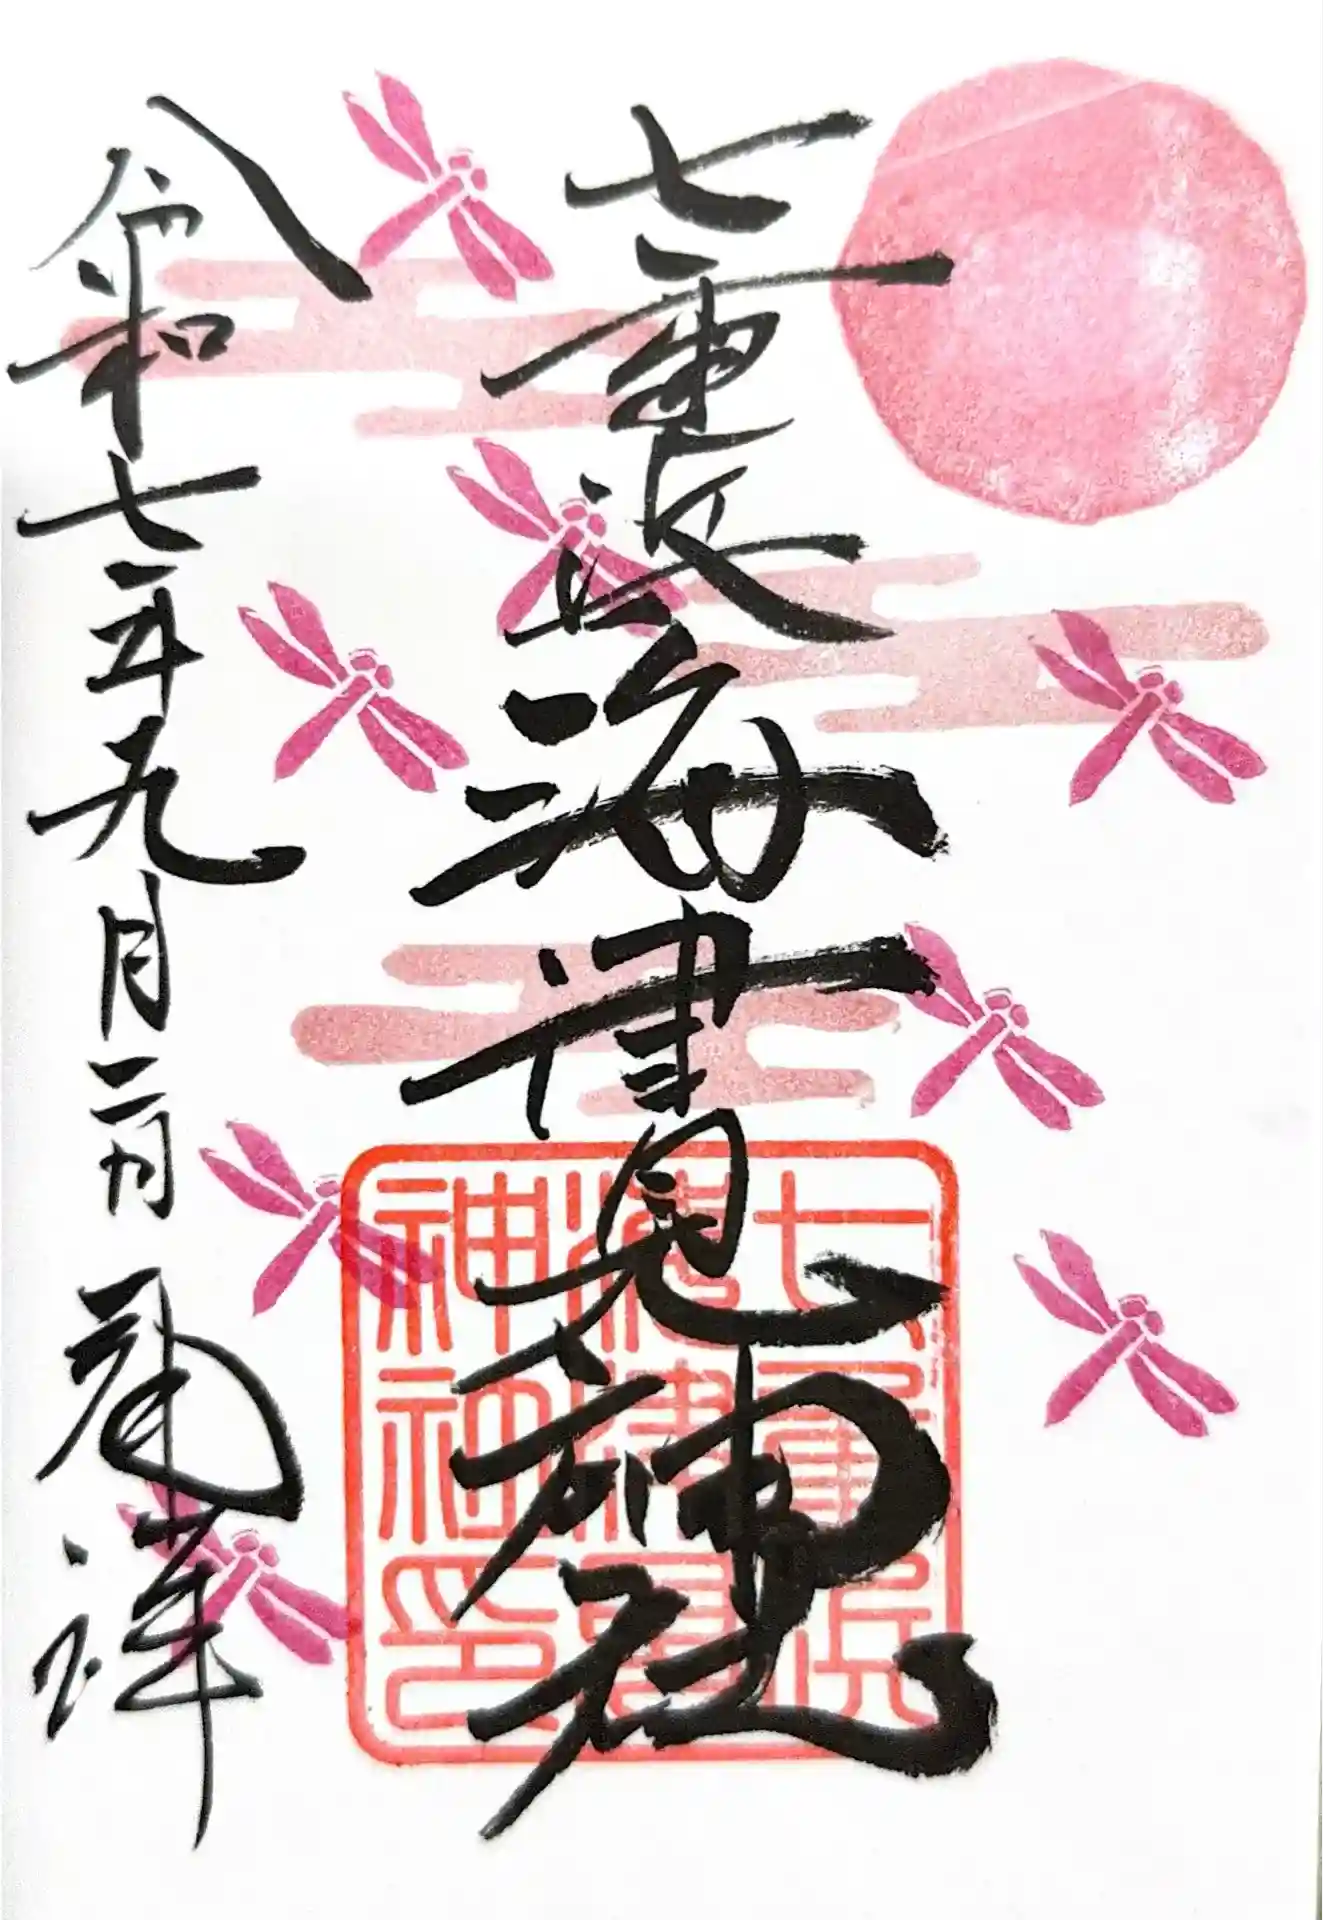 七重浜海津見神社
令和七年九月二日
七重浜
海津見
神社印